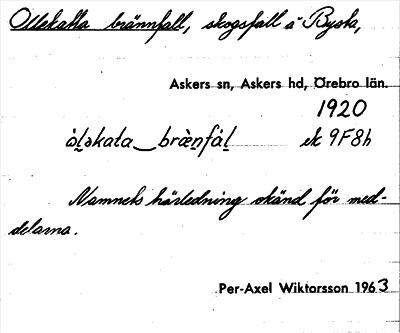 Ollekatta brännfall, skogsfall å Bysta,
Askers sn, Askers hd, Örebro län.
1920
ȯl̲əkata_bræn̲fál̲ ek 9F8h
Namnets härledning okänd för med-
delarna.
Per-Axel Wiktorsson 1963